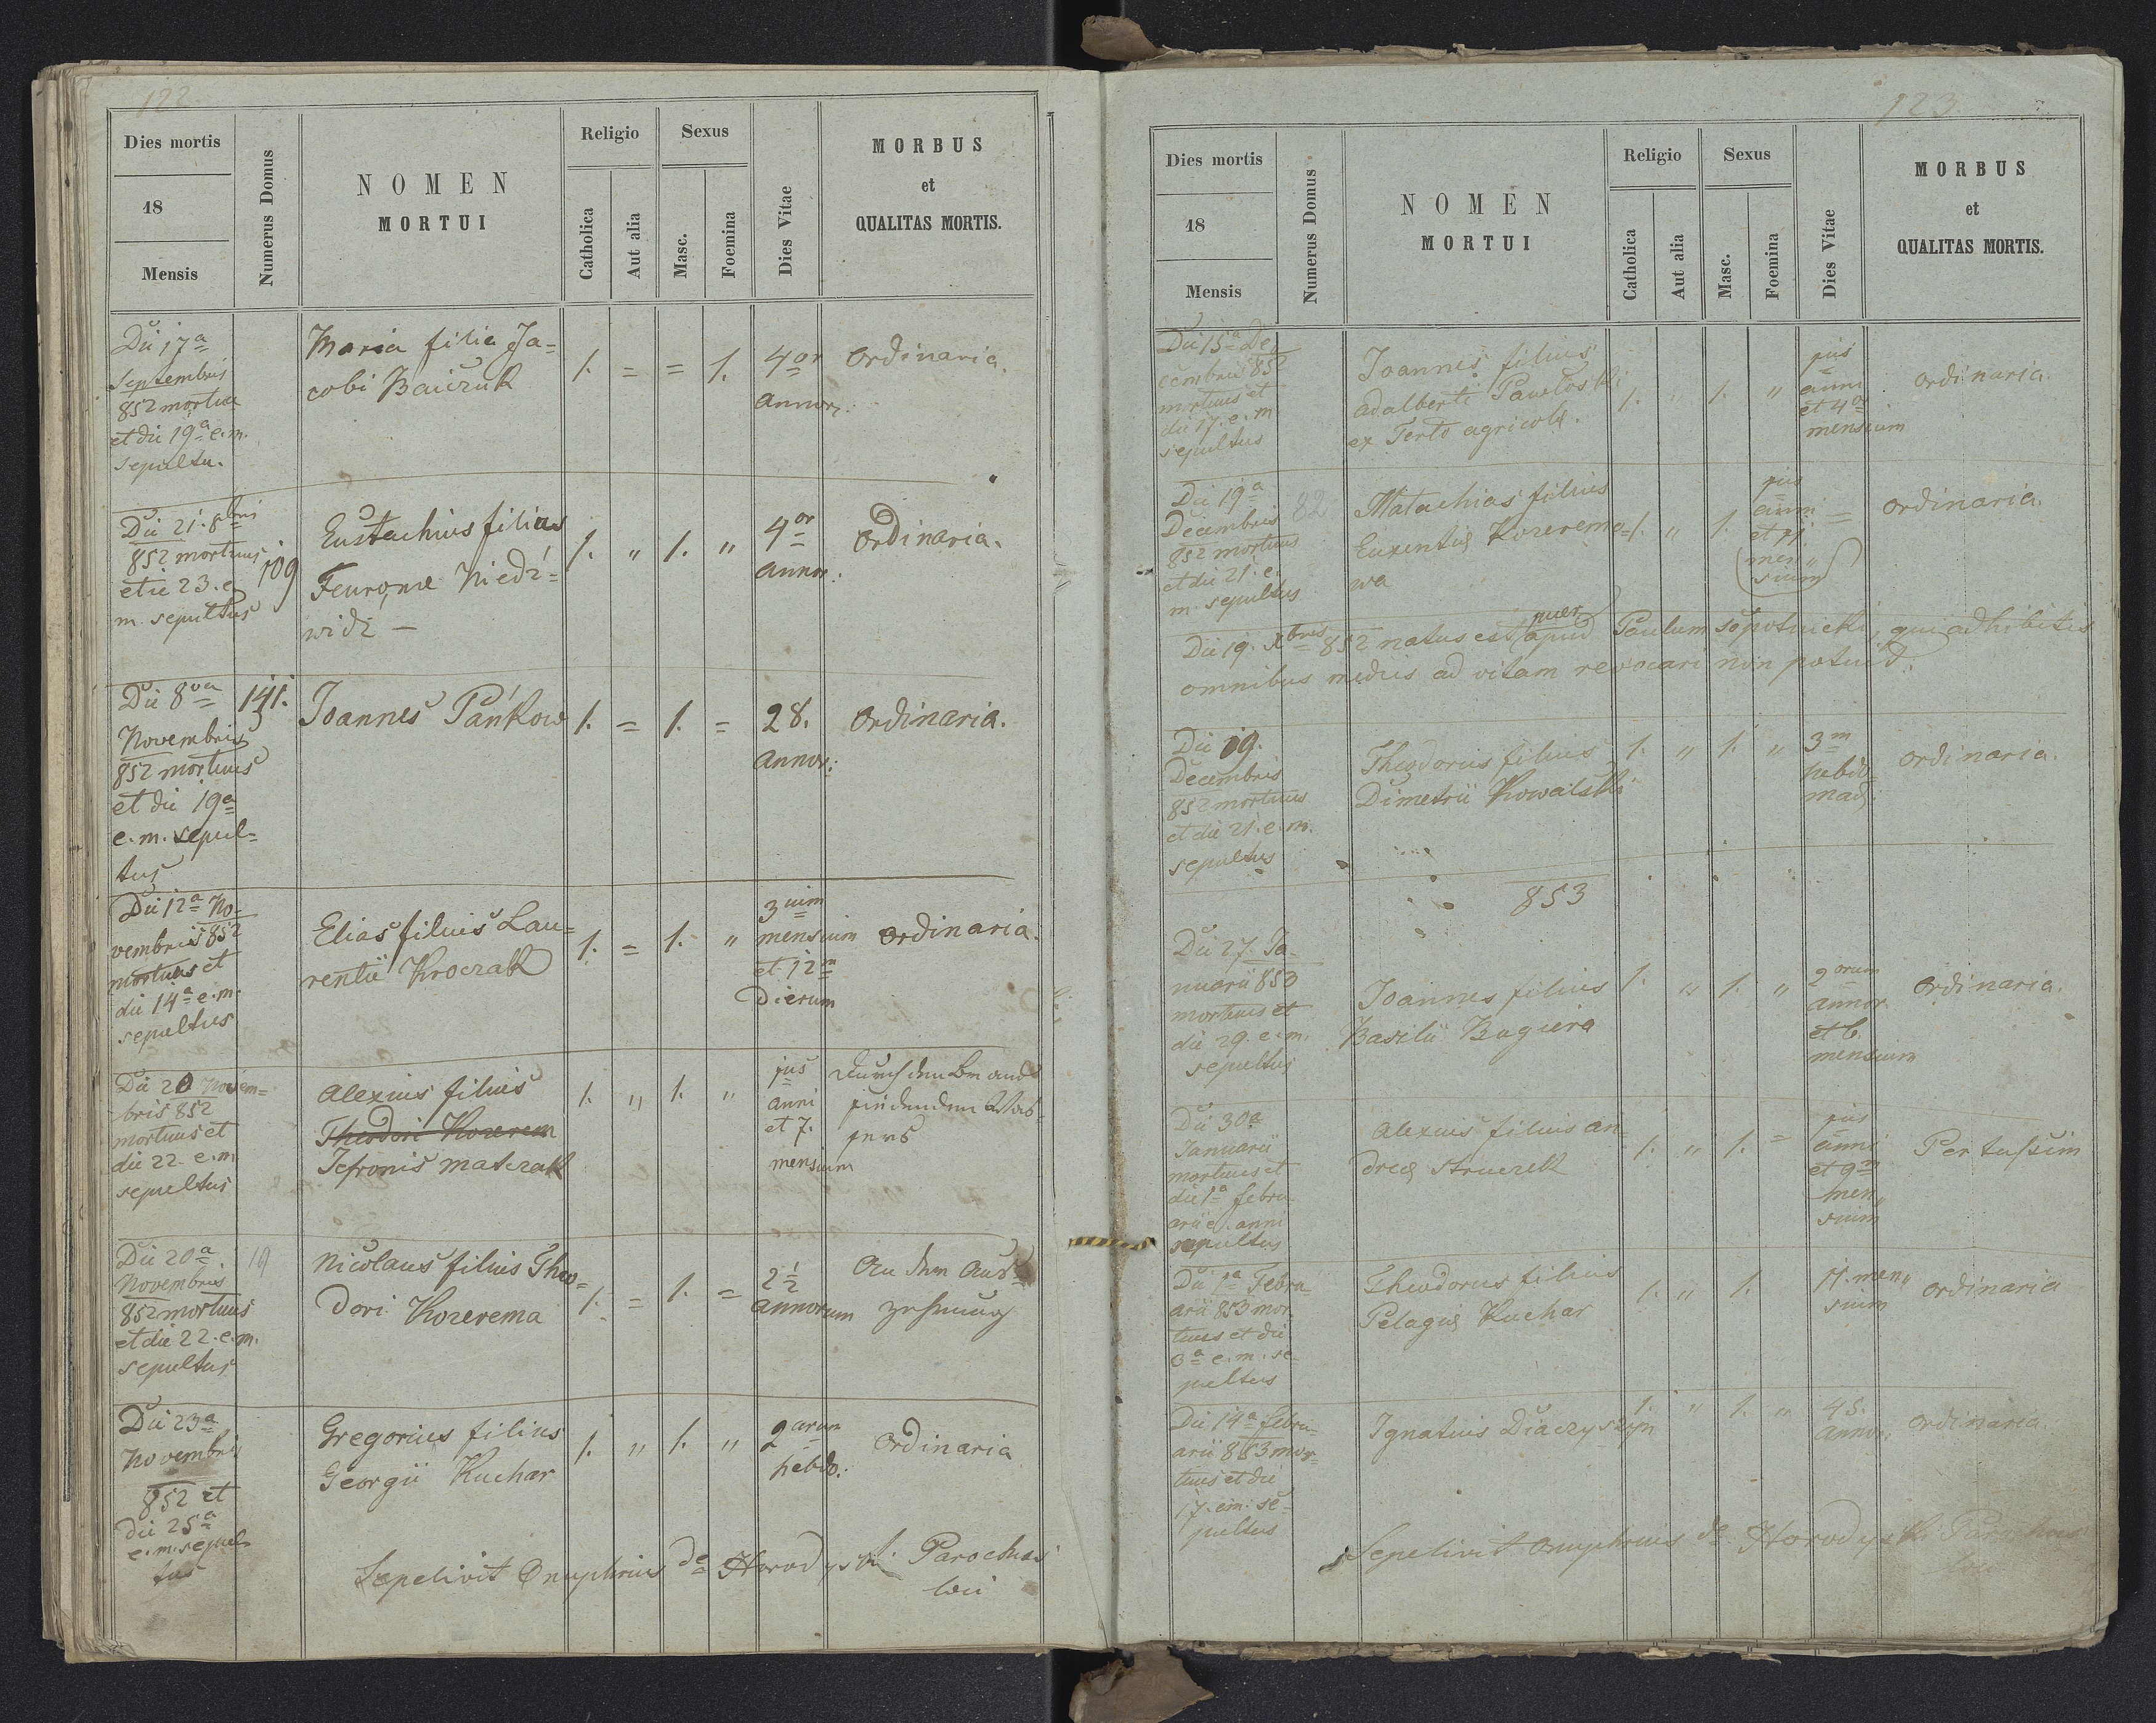 122
Dies mortis
18
Mensis
Numerus Domus
NOMEN
MORTUI
Religio
Catholica
Aut alia
Sexus
Masc.
Foemina
Dies Vitae
MORBUS
et
QUALITAS MORTIS.
Die 17a
Septembris
852 mortua
et die 19a e.m.
sepulta.
Maria filia Ja=
cobi Baiczuk
1. = = 1.
4or
annor:
Ordinaria.
Die 21. 8bris
852 mortuus
et ie 23. e
m. sepultus
109
Eustachius filius
Feuronae Niedz=
widz —
1. " 1. "
4or
annor:
Ordinaria.
Die 8va
Novembris
852 mortuus
et die 19a
e.m. sepul=
tus
141.
Joannes Pańkow
1. = 1. =
28.
annor:
Ordinaria.
Die 12a No-
vembris 852
mortuus et
die 14a e.m.
sepultus
Elias filius Lau=
rentii Kroczak
1. = 1. "
3uim
mensium
et 12m
Dierum
Ordinaria.
Die 20 Novem=
bris 852
mortuus et
die 22. e.m.
sepultus
Alexius filius
Theodori Kozerem
Jefronis Matczak
1. " 1. "
jus
anni
et 7.
mensium
Durch den
Die 20a
Novembris
852 mortuus
et die 22. e.m.
sepultus
19
Nicolaus filius Theo=
dori Kozerema
1. = 1. =
2 1/2
annorum
An der Aus=
zehrung
Die 23a
Novembris
852 et
die 25a
e.m. sepul=
tus
Gregorius filius
Georgii Kuchar
1. " 1. "
2arum
hebdo:
Ordinaria
Sepelivit Onuphrius de Horodyski Parochus
loci
123
Dies mortis
18
Mensis
Numerus Domus
NOMEN
MORTUI
Religio
Catholica
Aut alia
Sexus
Masc.
Foemina
Dies Vitae
MORBUS
et
QUALITAS MORTIS.
Die 15a De-
cembris 852
mortuus et
die 17. e.m
sepultus
Joannes filius
Adalberti Pawloski
ex agricola.
1. " 1. "
jus
anni
et 4or
mensium
Ordinaria.
Die 19a
Decembris
852 mortuus
et die 21. e.
m. sepultus
82
Matachias filius
Euxentiae Kozerema=
wa
1. " 1.
jus
anni
et 11.
men"
sium
=
Ordinaria.
Die 19. Xbris 852 natus est puer apud Paulum Sopotnicki, qui adhibitis
omnibus mediis ad vitam revocari non potuit.
Die 19.
Decembris
852 mortuus
et die 21. e.m.
sepultus
Theodorus filius
Dimetrii Kowalski
1. " 1. "
3m
hebdo-
mad:
Ordinaria.
853
Die 27. Ja-
nuarii 853
mortuus et
die 29. e.m.
sepultus
Joannes filius
Basilii Bugiera
1. " 1. "
2orum
annor.
et 6.
mensium
Ordinaria.
Die 30a
Januarii
mortuus et
die 1a Febru
arii e. anni
sepultus
Alexius filius An
dreae Struczek
1. " 1. =
jus
anni
et 9m
men"
sium
Per tussim
Die 1a Febru
arii 853 mor
tuus et die
3a e.m. se-
pultus
Theodorus filius
Pelagiae Kuchar
1. " 1.
11. men"
sium
Ordinaria
Die 14a Febru-
arii 853 mor-
tuus et die
17. em. se-
pultus
Ignatius Diaczyszyn
1. " 1. "
45.
annor.
Ordinaria.
Sepelivit Onuphrius de Horodyski Parochus
loci